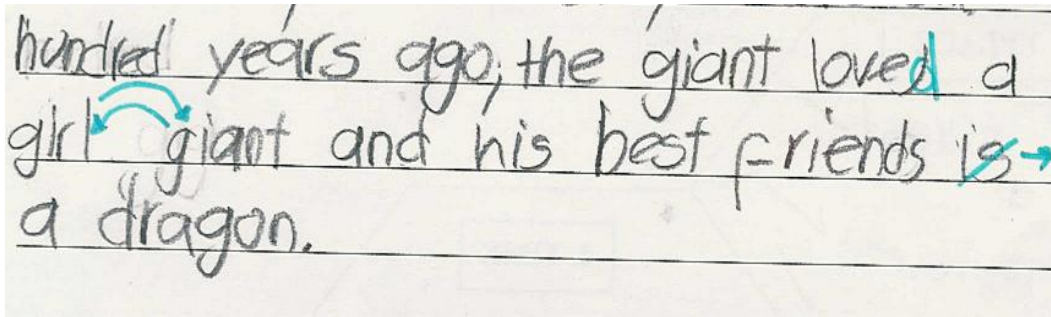 hundred years ago, the giant loved a
girl giant and his best friends is
a dragon.